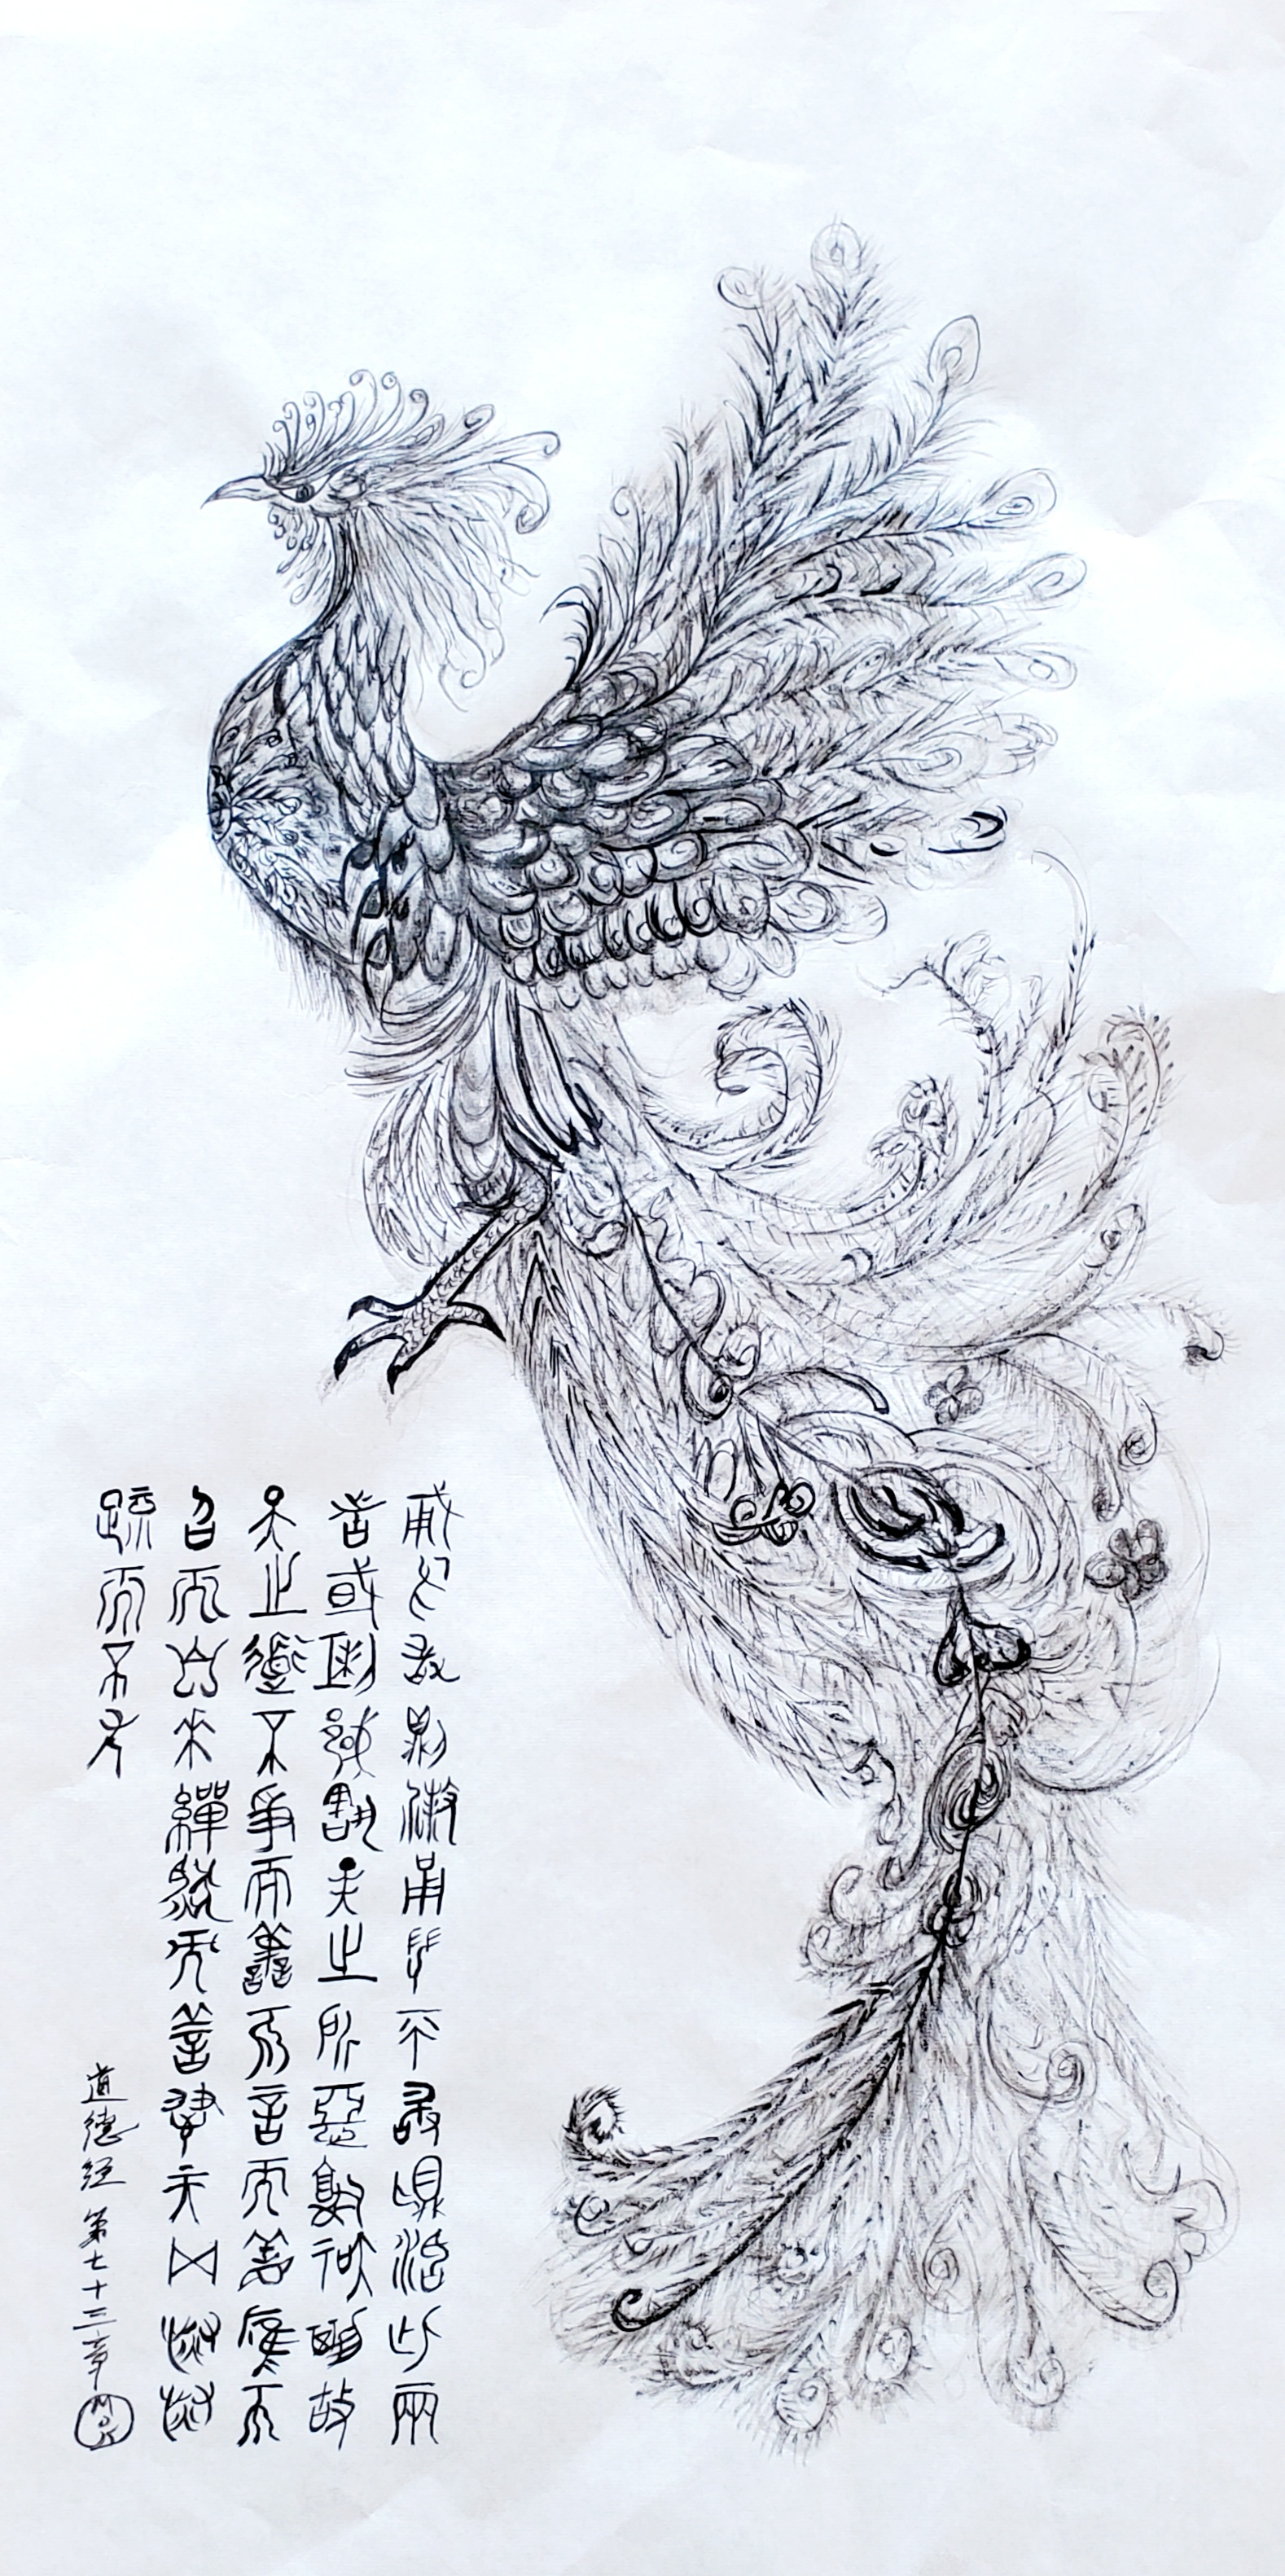 勇於敢則殺勇於不敢則活此兩
者或利或害天之所惡孰知其故
天之道不爭而善不言而善應不
召而自來繟然而善謀天網恢恢
疏而不失
道德经第七十三章